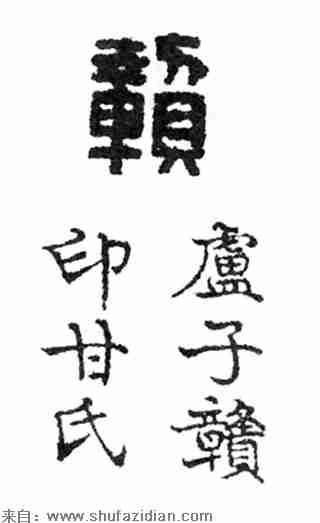 贛
盧子贛
印甘氏
来自：www.shufazidian.com